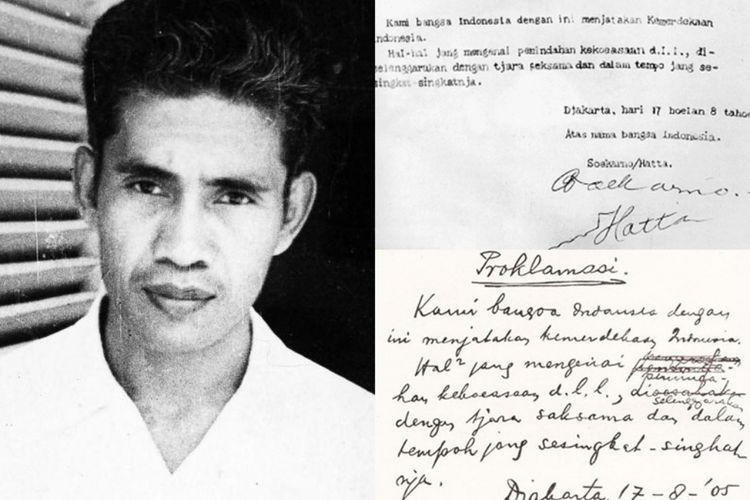 Kami bangsa Indonesia dengan ini menjatakan Kemerdekaan
Indonesia.
Hal-hal jang mengenai pemindahan kekoeasaan d.l.l., di-
selenggarakan dengan tjara seksama dan dalam tempo jang se-
singkat-singkatnja.
Djakarta, hari 17 boelan 8 tahoe
Atas nama bangsa Indonesia.
Soekarno/Hatta.
Soekarno.
Hatta
Proklamasi.
Kami bangsa Indonesia dengan
ini menjatakan kemerdekaan Indonesia.
Hal² jang mengenai
peminda-
han kekoeasaan d.l.l., dioesahakan
selenggarakan
dengan tjara saksama dan dalam
tempoh jang sesingkat-singkat
nja.
Djakarta, 17-8-'05